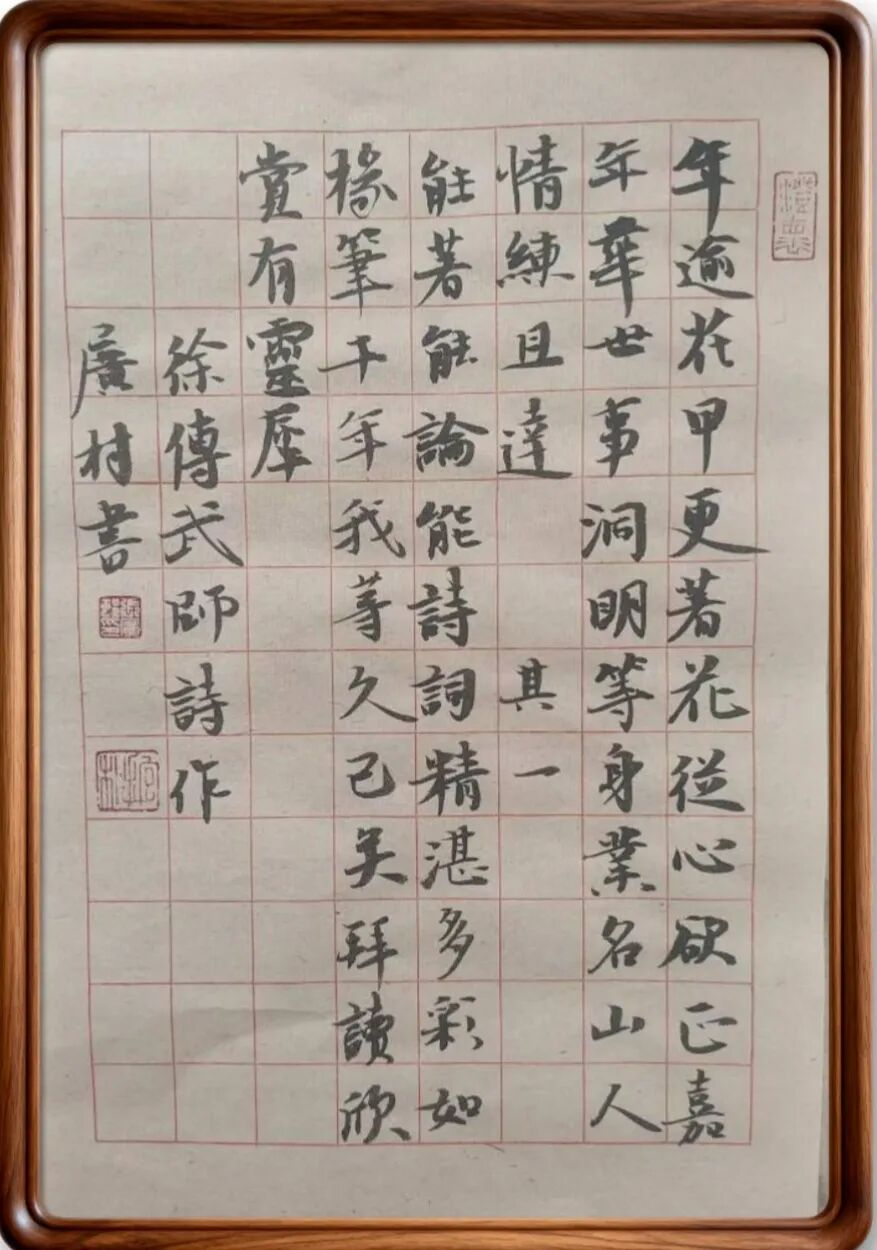 年逾花甲更著花從心欲正嘉
年華世事洞明等身業名山人
情練且達 其一
能著能論能詩詞精湛多彩如
椽筆千年我等久已矣拜讀欣
賞有靈犀
徐傳武師詩作
廣村書